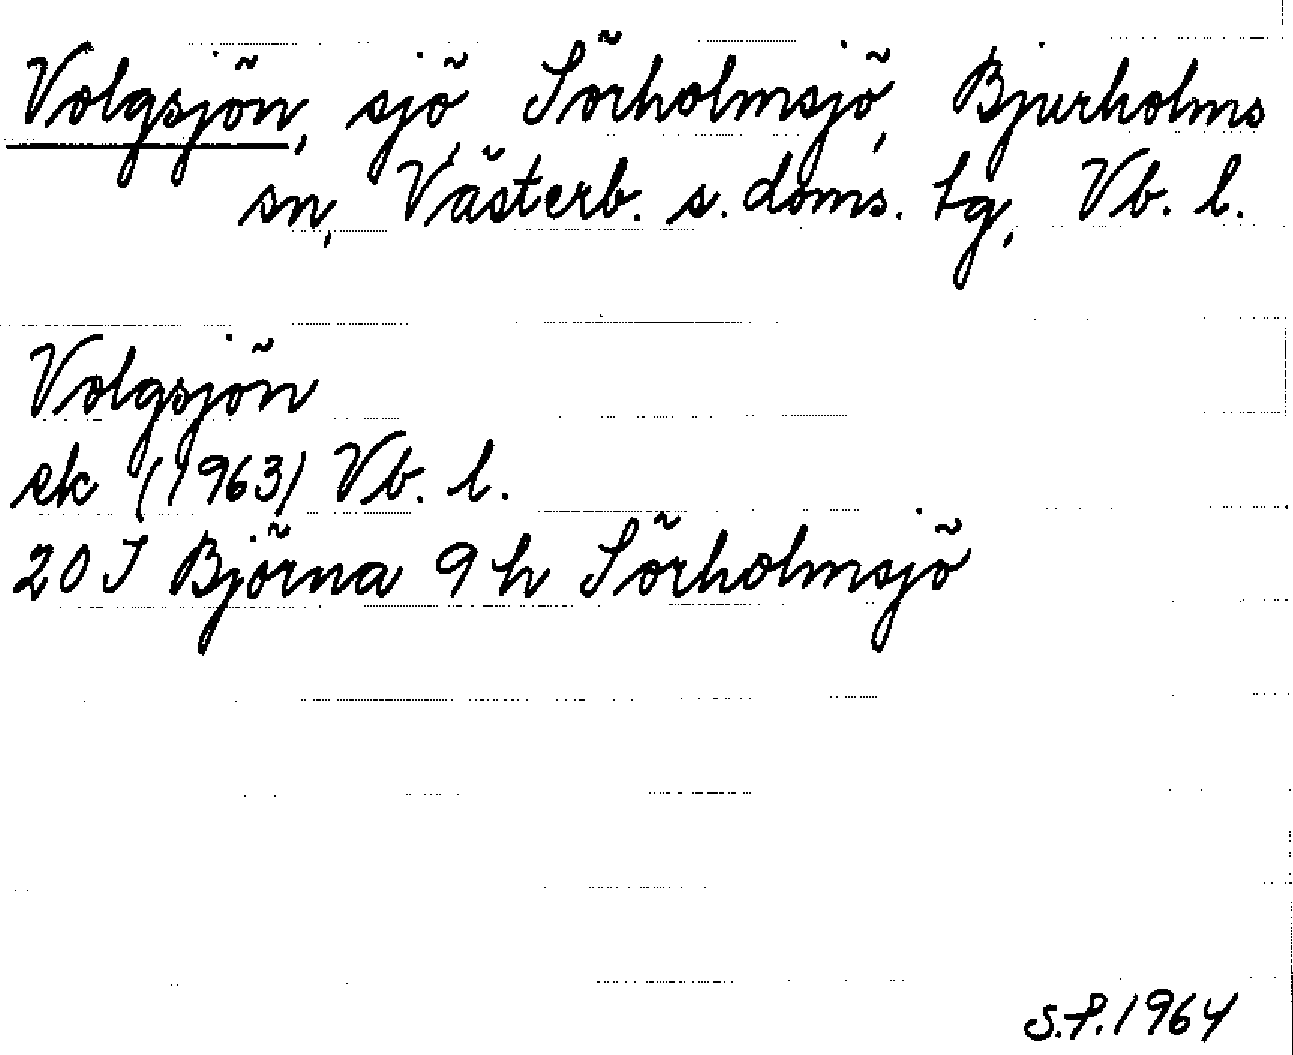 Volgsjön, sjö Sörholmsjö, Bjurholms
sn, Västerb. s. doms. tg, Vb. l.
Volgsjön
ek (1963) Vb. l.
20 J Björna 9 h Sörholmsjö
S.P. 1964